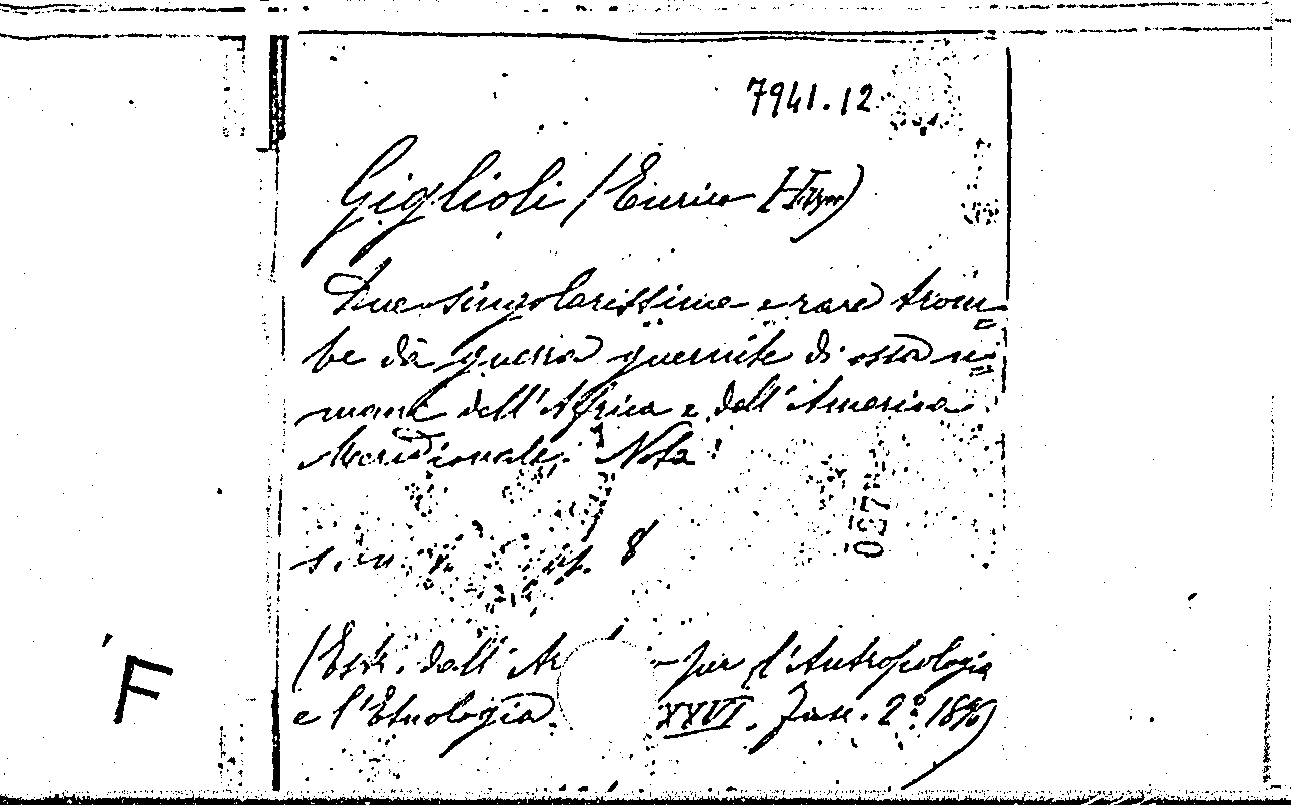 7941.12
Giglioli (Enrico H.
Due singolarissime e rare trom=
be da guerra guernite di ossa u=
mane dell'Africa e dell'America
Meridionale. Nota.
8
(Estr. dall'Ar per l'Antropologia
e l'Etnologia. XXVI. Fasc. 2º. 1896)
037
F